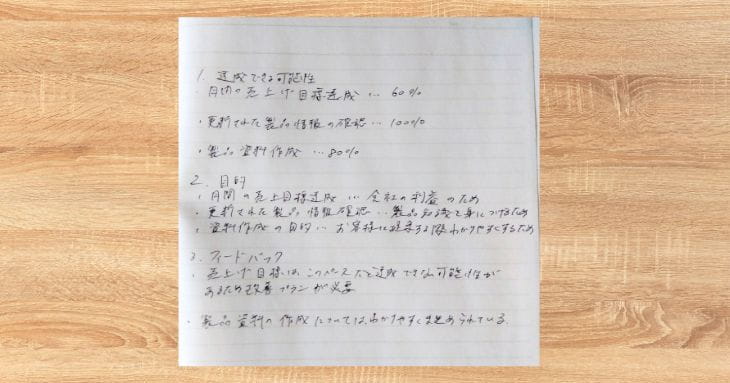 1. 達成できる可能性
・月間の売上げ目標達成 … 60%
・更新された製品情報の確認 … 100%
・製品資料作成 … 80%
2. 目的
・月間の売上目標達成 … 会社の利益のため
・更新された製品情報確認 … 製品知識を身につけるため
・資料作成の目的 … お客様に提案する際わかりやすくするため
3. フィードバック
・売上げ目標は、このペースだと達成できない可能性が
あるため改善プランが必要
・製品資料の作成については、わかりやすくまとめられている。